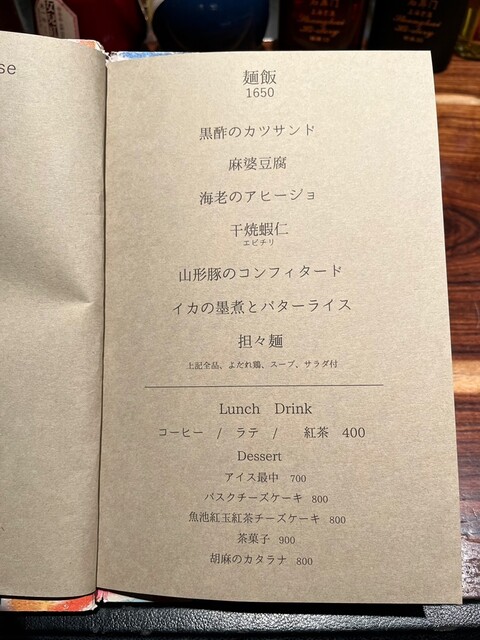 se
麺飯
1650
黒酢のカツサンド
麻婆豆腐
海老のアヒージョ
干焼蝦仁
エビチリ
山形豚のコンフィタード
イカの墨煮とバターライス
担々麺
上記全品、よだれ鶏、スープ、サラダ付
Lunch Drink
コーヒー / ラテ / 紅茶 400
Dessert
アイス最中 700
バスクチーズケーキ 800
魚池紅玉紅茶チーズケーキ 800
茶菓子 900
胡麻のカタラナ 800